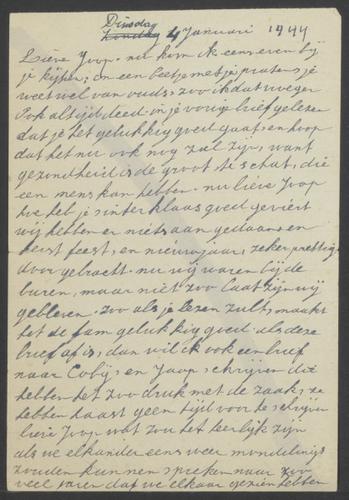 Dinsdag
Zondag 4 Januari 1944
Lieve Joop. nu kom ik eens even bij
je kijken, om een beetje met je praten, je
weet wel van ouds, zoo ik dat weger
Ook altijd deed. in je vorige brief gelezen
dat je het gelukkig goed gaat, en hoop
dat het nu ook nog zal zijn, want
gezondheid is de grootste schat, die
een mens kan hebben. nu lieve Joop
hoe heb je sinterklaas goed geviert
wij hebben er niets aan gedaan en
kerst feest, en nieuwjaar, zeker prettig
door gebracht. nu wij waren bij de
buren, maar niet zoo laat zijn wij
gebleven. zoo als je lezen zult, maakt
het de fam gelukkig goed. als deze
brief af is, dan wil ik ook een brief
naar Cobij en Jaap schrijven die
hebben het zoo druk met de zaak, ze
hebben haast geen tijd voor te schrijven
lieve Joop wat zou het heerlijk zijn
als we elkander eens weer mondelings
zouden kunnen spreken naar zoo
veel jaren dat we elkaar gezien hebben